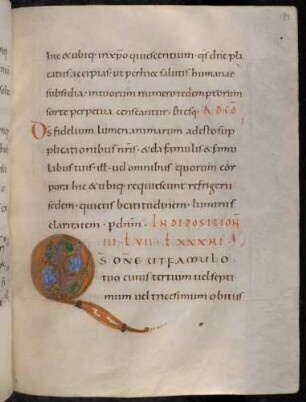 hic & ubiq; inxpo quiescentium. qs dne pla
catus accipias. ut per haec salutis humanae
subsidia. intuorum numero redemptorum
sorte perpetua censeantur. AD CO
Ds fidelium lumen animarum adesto sup
plicationibus nris. & da famulis & famu
labus tuis. ill. vel omnibus quorum cor
pora hic & ubiq; requiescunt refrigerii
sedem. quietis beatitudinem. luminis
claritatem. p dnm. IN DEPOSITION
III. L VII. L XXXMI
QS DNE UT FAMULO
tuo cuius tertium vel septi
mum vel tricesimum obitus